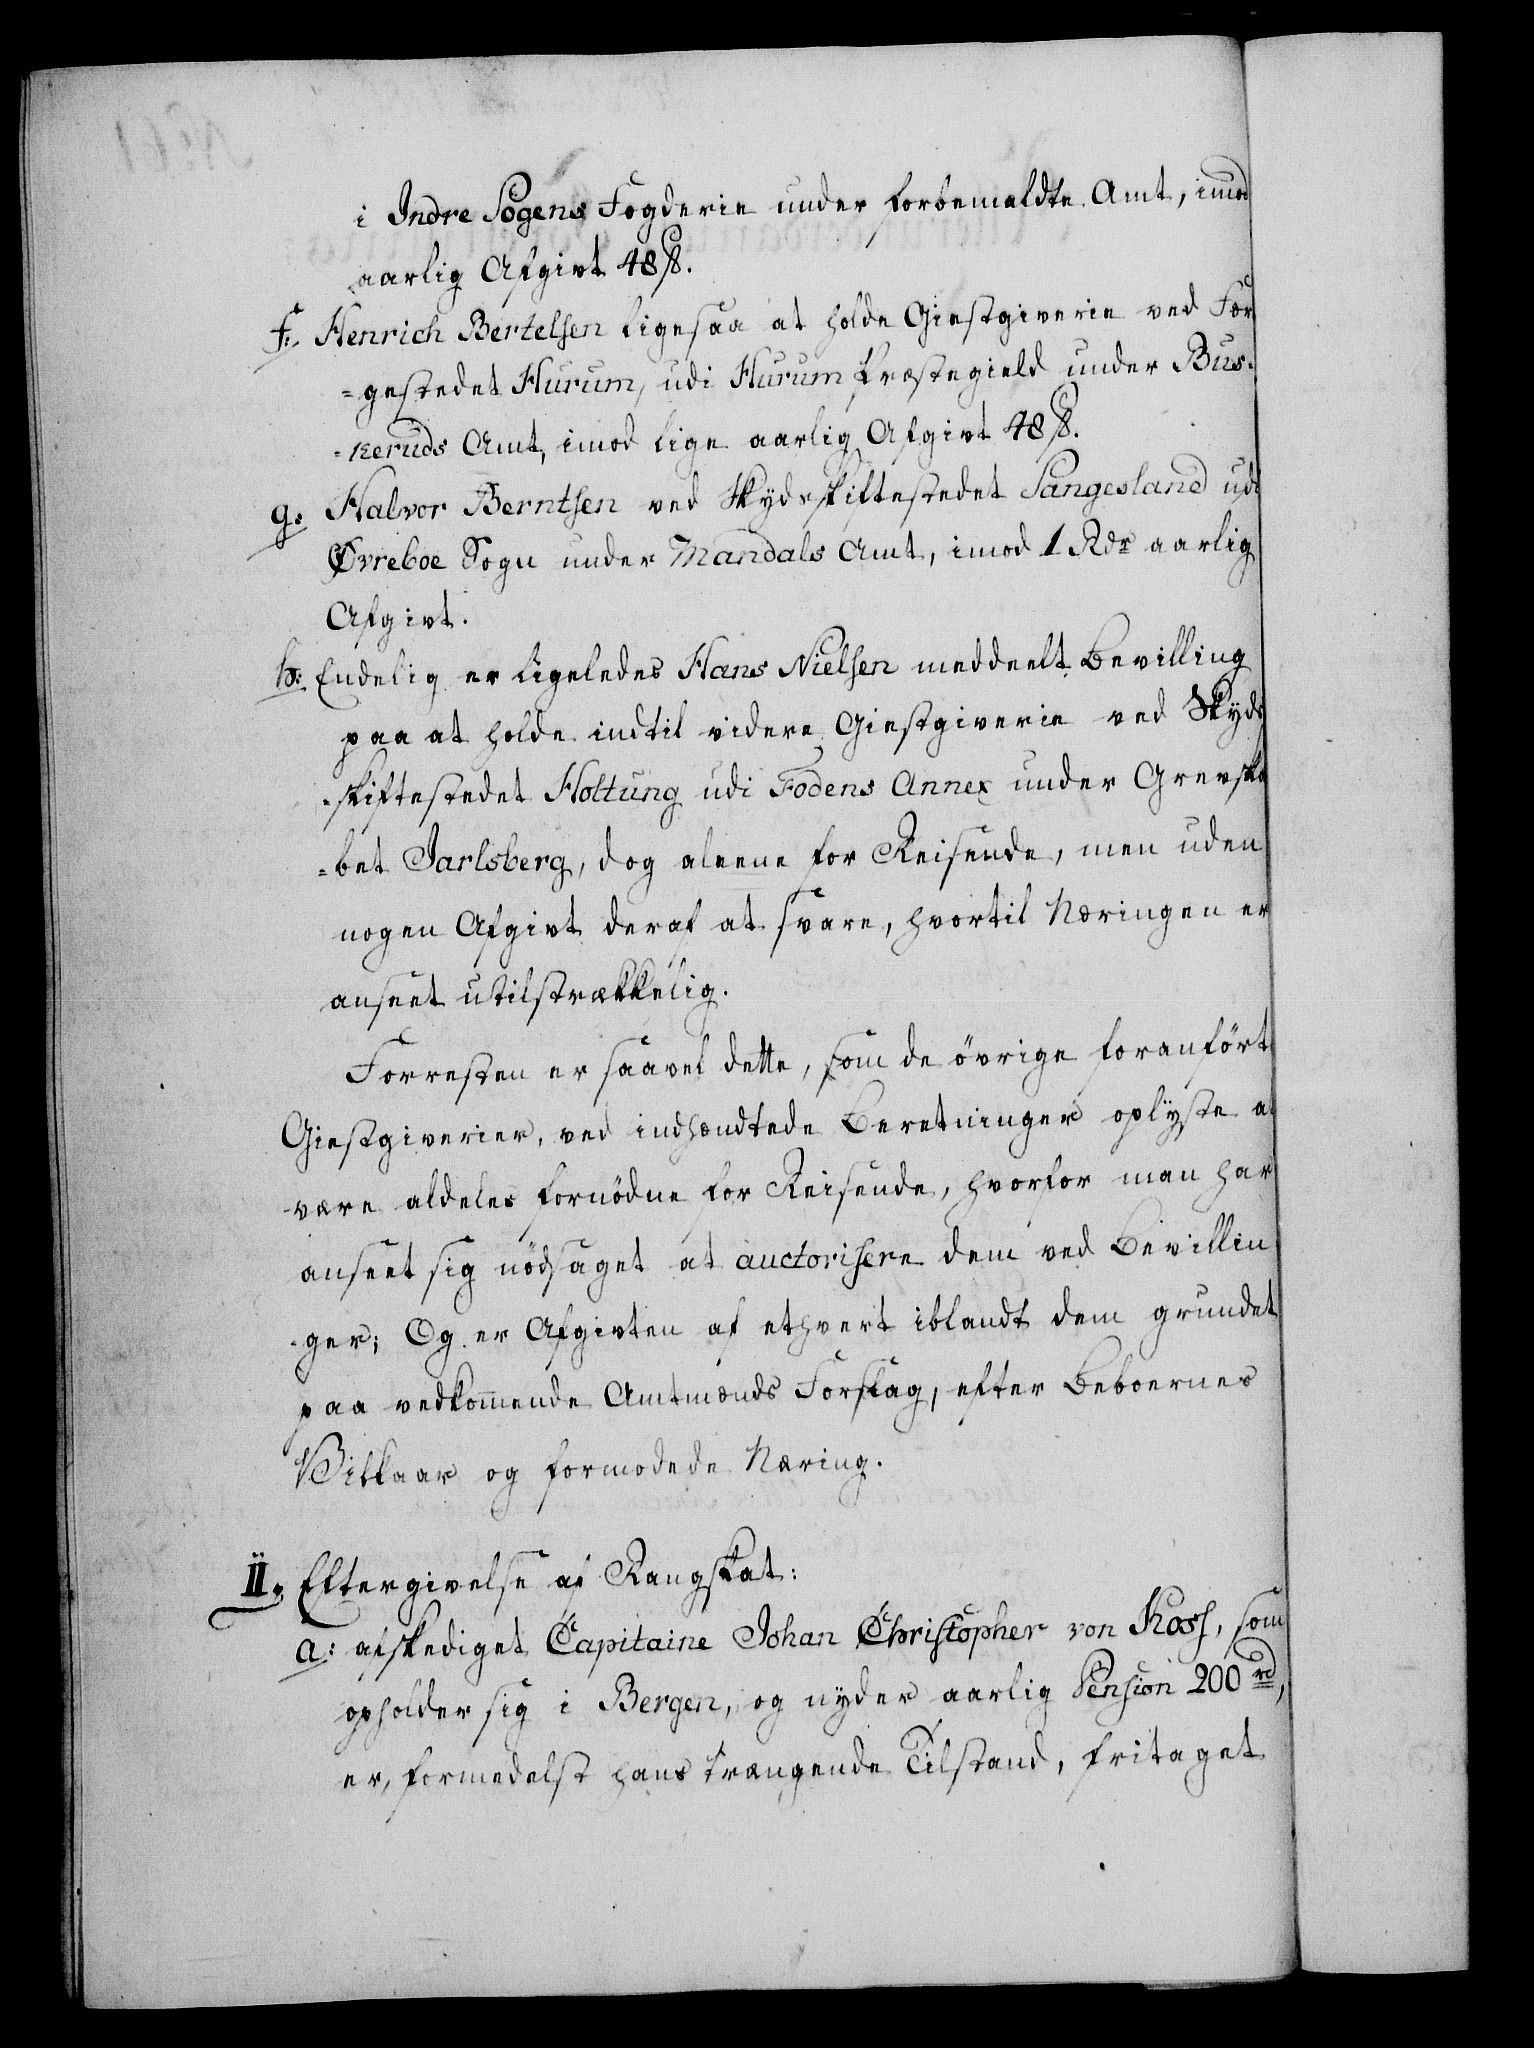 i Indre Sogens Fogderie under forbemældte Amt, imod
aarlig Afgivt 48 ß.
f. Henrich Bertelsen ligesaa at holde Giestgiverie ved Fær
=gestedet Hurum, udi Hurum Præstegield under Bus-
-keruds Amt, imod lige aarlig Afgivt 48 ß.
g. Halvor Berntsen ved Skydsskiftestedet Sangesland udi
Øvreboe Sogn under Mandals Amt, imod 1 Rdr aarlig
Afgivt.
h: Endelig er ligeledes Hans Nielsen meddeelt Bevilling
paa at holde indtil videre Giestgiverie ved Skyds
-skiftestedet Holtung udi Fodens Annex under Grevska
=bet Jarlsberg, dog aleene for Reisende, men uden
nogen Afgivt deraf at svare, hvortil Næringen er
anseet utilstrækkelig.
Forresten er saavel dette, som de övrige foranfört
Giestgiverier, ved indhændtede Beretninger oplyste a
være aldeles fornödne for Reisende, hvorfor man har
anseet sig nödsaget at auctorisere dem ved Bevillin
-ger; Og er Afgivten af ethvert iblandt dem grundet
paa vedkom̄ende Amtmænds Forslag, efter Beboernes
Vilkaar og formodede Næring.
II. Eftergivelse af Rangskat:
a: afskediget Capitaine Johan Christopher von Koss, som
opholder sig i Bergen, og nyder aarlig Pension 200 rd,
er, formedelst hans trængende Tilstand, fritaget